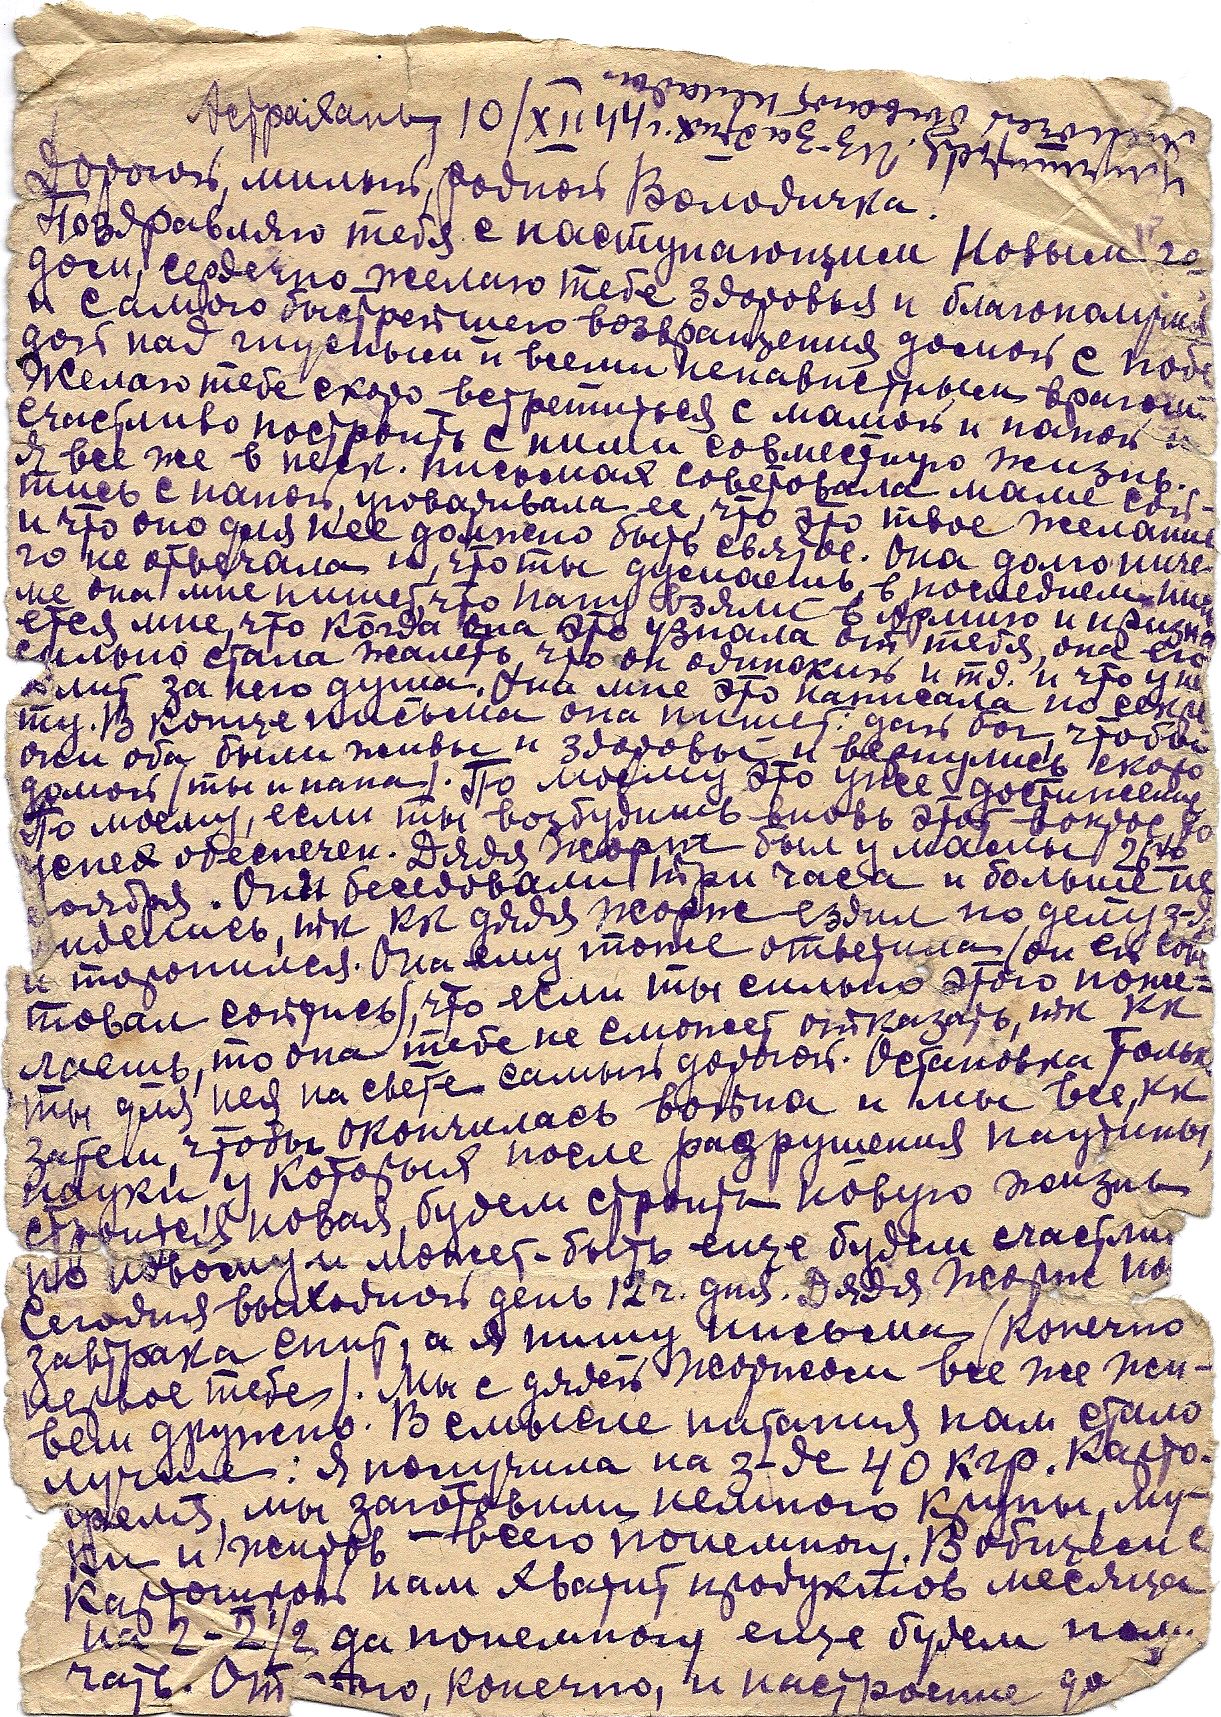 Астрахань, 10/XII 44 г.
Дорогой, милый, родной Володичка.
Поздравляю тебя с наступающим Новым го-
дом, сердечно желаю тебе здоровья и благополучия
и самого быстрейшего возвращения домой с побе
дой над гнусным и всеми ненавистным врагом.
Желаю тебе скоро встретиться с мамой и папой и
счастливо построить с ними совместную жизнь.
Я все же в неск. письмах советовала маме сой-
тись с папой, уговаривала ее, что это твое желание
и что оно для нее должно быть святое. Она долго ниче
го не отвечала и, что ты думаешь, в последнем пись
ме она мне пишет, что папу взяли в Армию и призна
ется мне, что когда она это узнала от тебя, она его
сильно стала жалеть, что он одинокий и т.д. и что у нее
болит за него душа. Она мне это написала по секре
ту. В конце письма она пишет: дай бог, чтобы
они оба были живы и здоровы и вернулись скоро
домой (ты и папа). По моему это уже достижение
По моему, если ты возбудишь вновь этот вопрос, то
успех обеспечен. Дядя Жорж был у мамы 26го
ноября. Они беседовали три часа и больше не
виделись, тк кк дядя Жорж ездил по делу з-да
и торопился. Она ему тоже ответила (он ей сове
товал сойтись), что если ты сильно этого поже-
лаешь, то она тебе не сможет отказать, тк кк
ты для нея на свете самый дорогой. Остановка только
затем, чтобы окончилась война и мы все, кк
пауки, у которых после разрушения паутины,
строится новая, будем строить новую жизнь
по новому и может-быть еще будем счастли
Сегодня выходной день 12 ч. дня. Дядя Жорж по
завтрака спит, а я пишу письма (конечно
первое тебе). Мы с дядей Жоржом все же жи-
вем дружно. В смысле питания нам стало
лучше: я получила на з-де 40 кгр. карто-
феля, мы заготовили немного крупы, му-
ки и жиров – всего понемногу. В общем с
картошкой нам хватит продуктов месяца
на 2-2 1/2 да понемногу еще будем полу
чать. От этого, конечно, и настроение до
Из-за этих